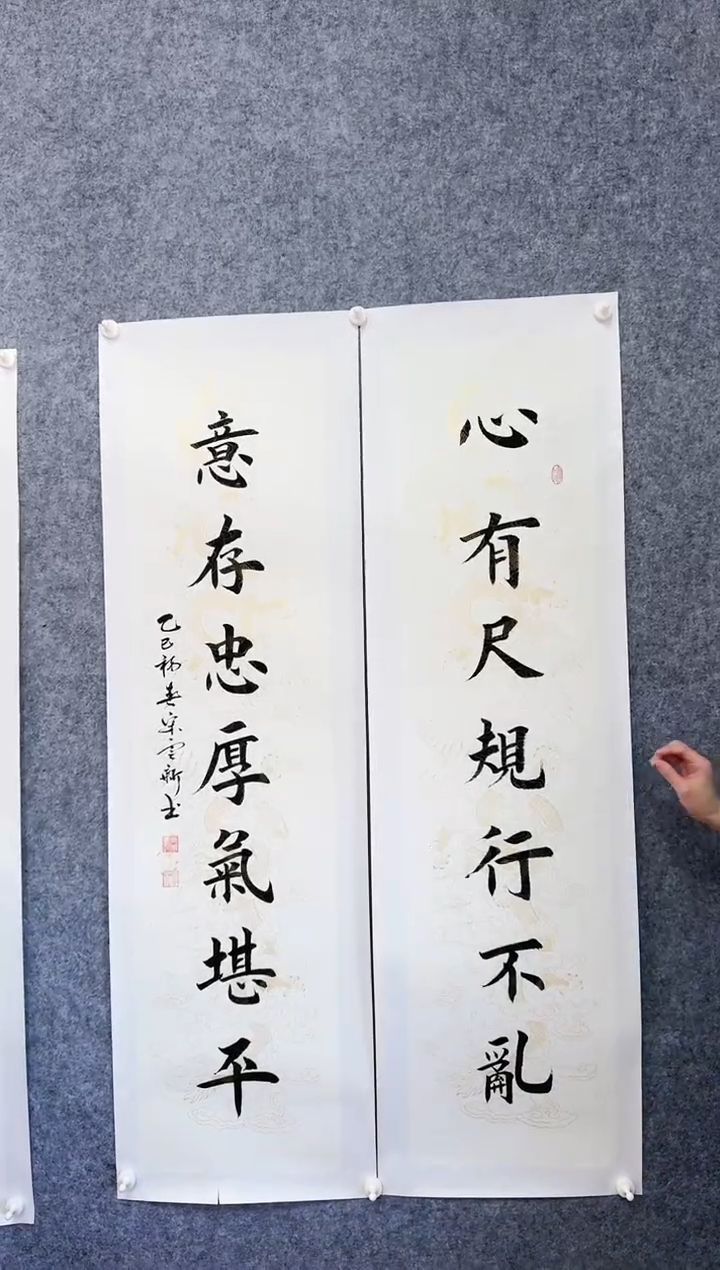 心有尺規行不亂
意存忠厚氣堪平
乙巳初春宋雲新書